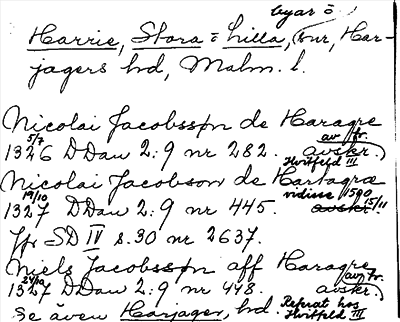 byar =
Harrie, Stora = Lilla, snr, Har-
jagers hd, Malm. l.
Nicolai Jacobsson de Haragre
5/7 av fr.
1326 DDan 2:9 nr 282. avskr.)
Hvitfeld III
Nicolai Jacobson de Hartagra
19/10 vidisse 1590 15/11
1327 DDan 2:9 nr 445. avskr.
Jfr SD IV s. 30 nr 2637.
Niels Jacobsson aff Haragre
24/10 av fr.
1327 DDan 2:9 nr 448. avskr.)
Se även Harjager, hd. Referat hos
Hvitfeld III